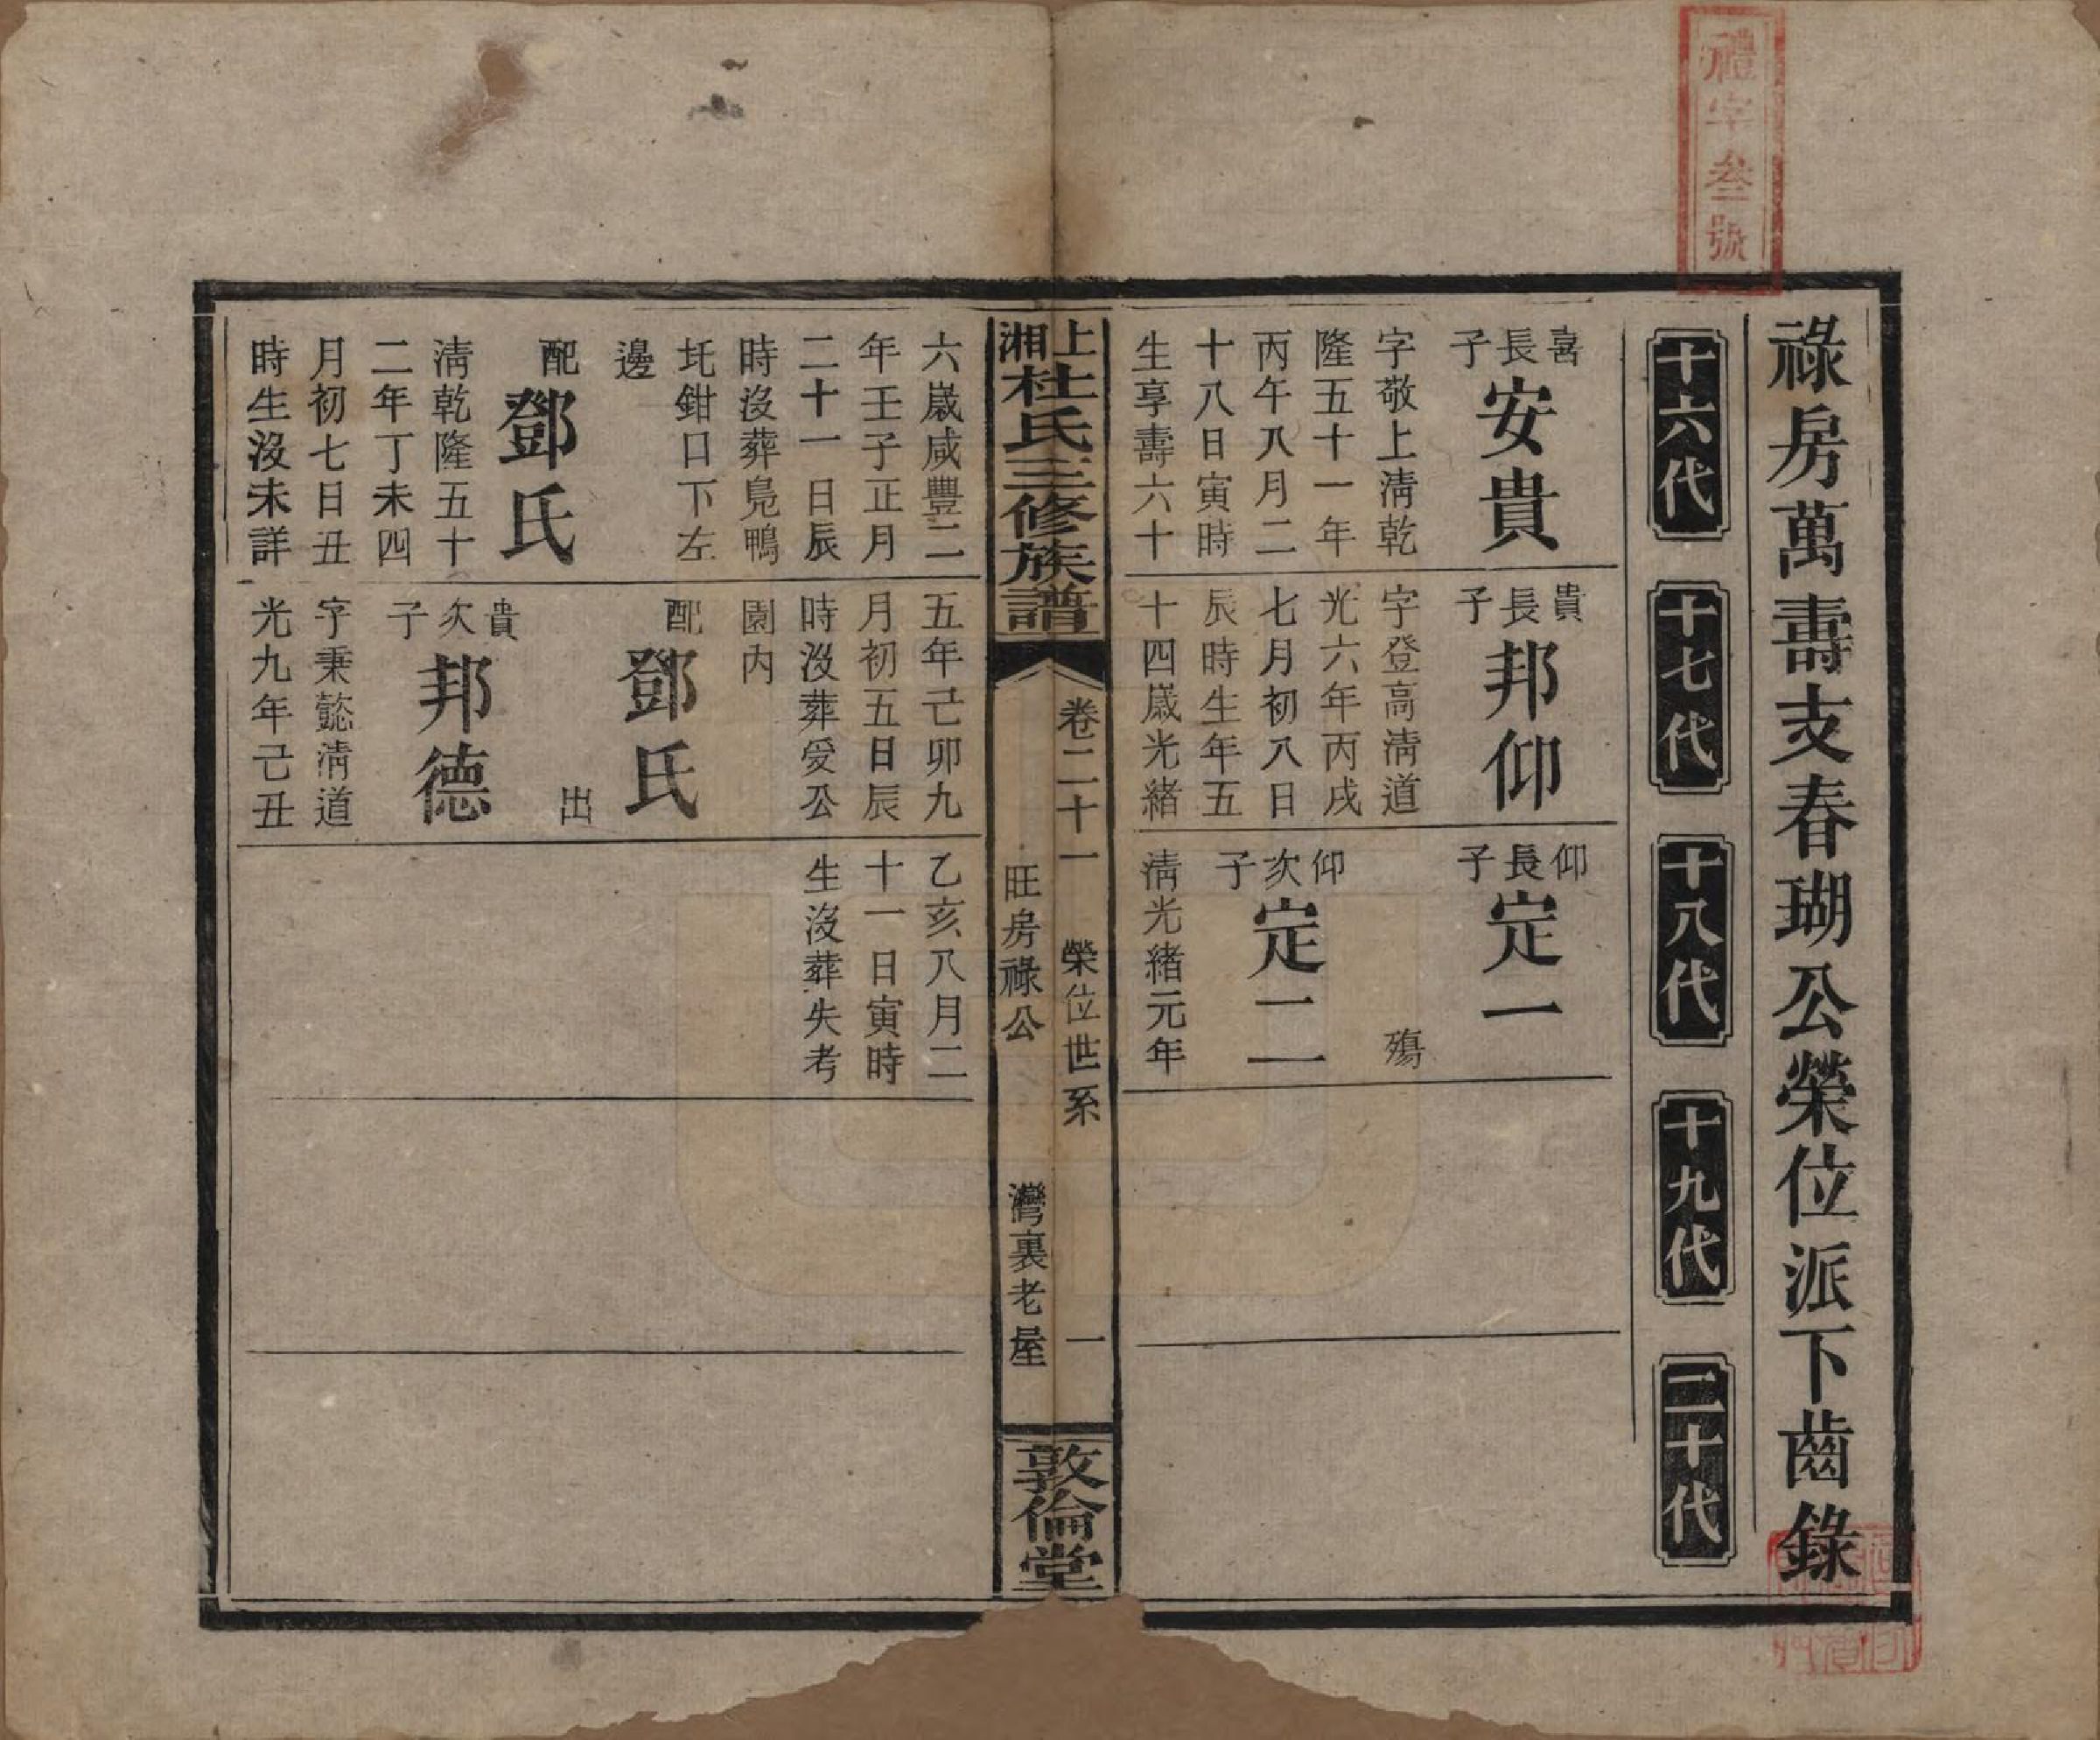 禮字叄號
祿房萬壽支春瑚公榮位派下齒錄
十六代
十七代
十八代
十九代
二十代
喜長子
安貴
字敬上淸乾
隆五十一年
丙午八月二
十八日寅時
生享壽六十
貴長子
邦仰
字登高淸道
光六年丙戌
七月初八日
辰時生年五
十四歲光緒
仰長子
定一
殤
仰次子
定二
淸光緒元年
上湘杜氏三修族譜
卷二十一
榮位世系
一
旺房祿公
灣裏老屋
敦倫堂
六歲咸豐二
年壬子正月
二十一日辰
時沒葬鳧鴨
圫鉗口下左
邊
配
鄧氏
淸乾隆五十
二年丁未四
月初七日丑
時生沒未詳
五年己卯九
月初五日辰
時沒葬爰公
園內
配
鄧氏
出
貴次子
邦德
字秉懿淸道
光九年己丑
乙亥八月二
十一日寅時
生沒葬失考